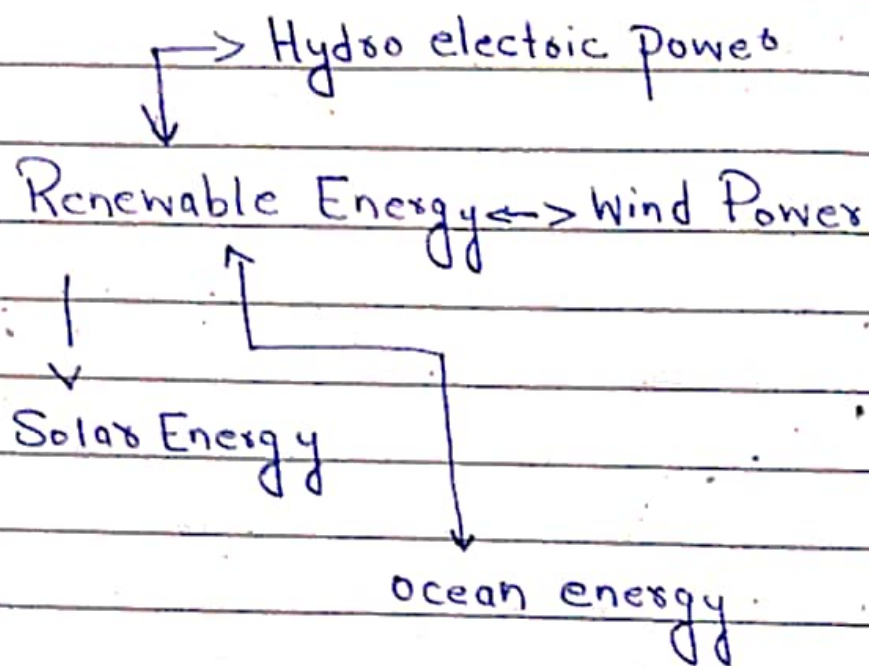 Hydro electric Power
Renewable Energy <-> Wind Power
Solar Energy
ocean energy